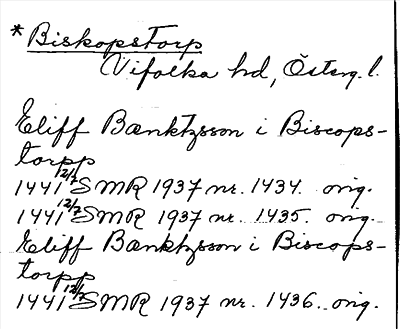 * Biskopstorp
Vifolka hd, Österg. l.
Eliff Bænktzsson i Biscops-
torpp
1441 12/7 SMR 1937 nr. 1434. orig.
1441 12/7 SMR 1937 nr. 1435. orig.
Eliff Bænktzsson i Biscops-
torpp
1441 12/7 SMR 1937 nr. 1436. orig.